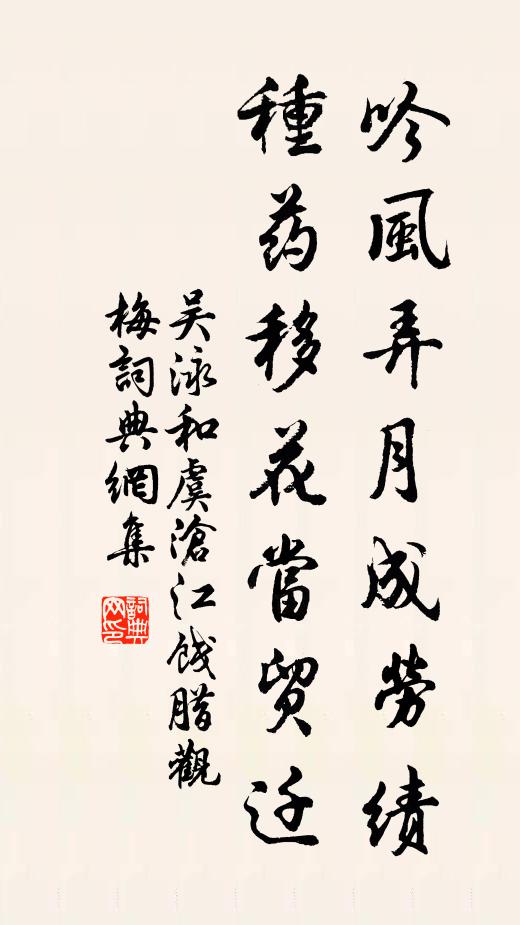 吟風弄月成勞績
種药移花當貿迁
吴泳和虞滄江餞腊觀
梅詞典網集
詞典网印